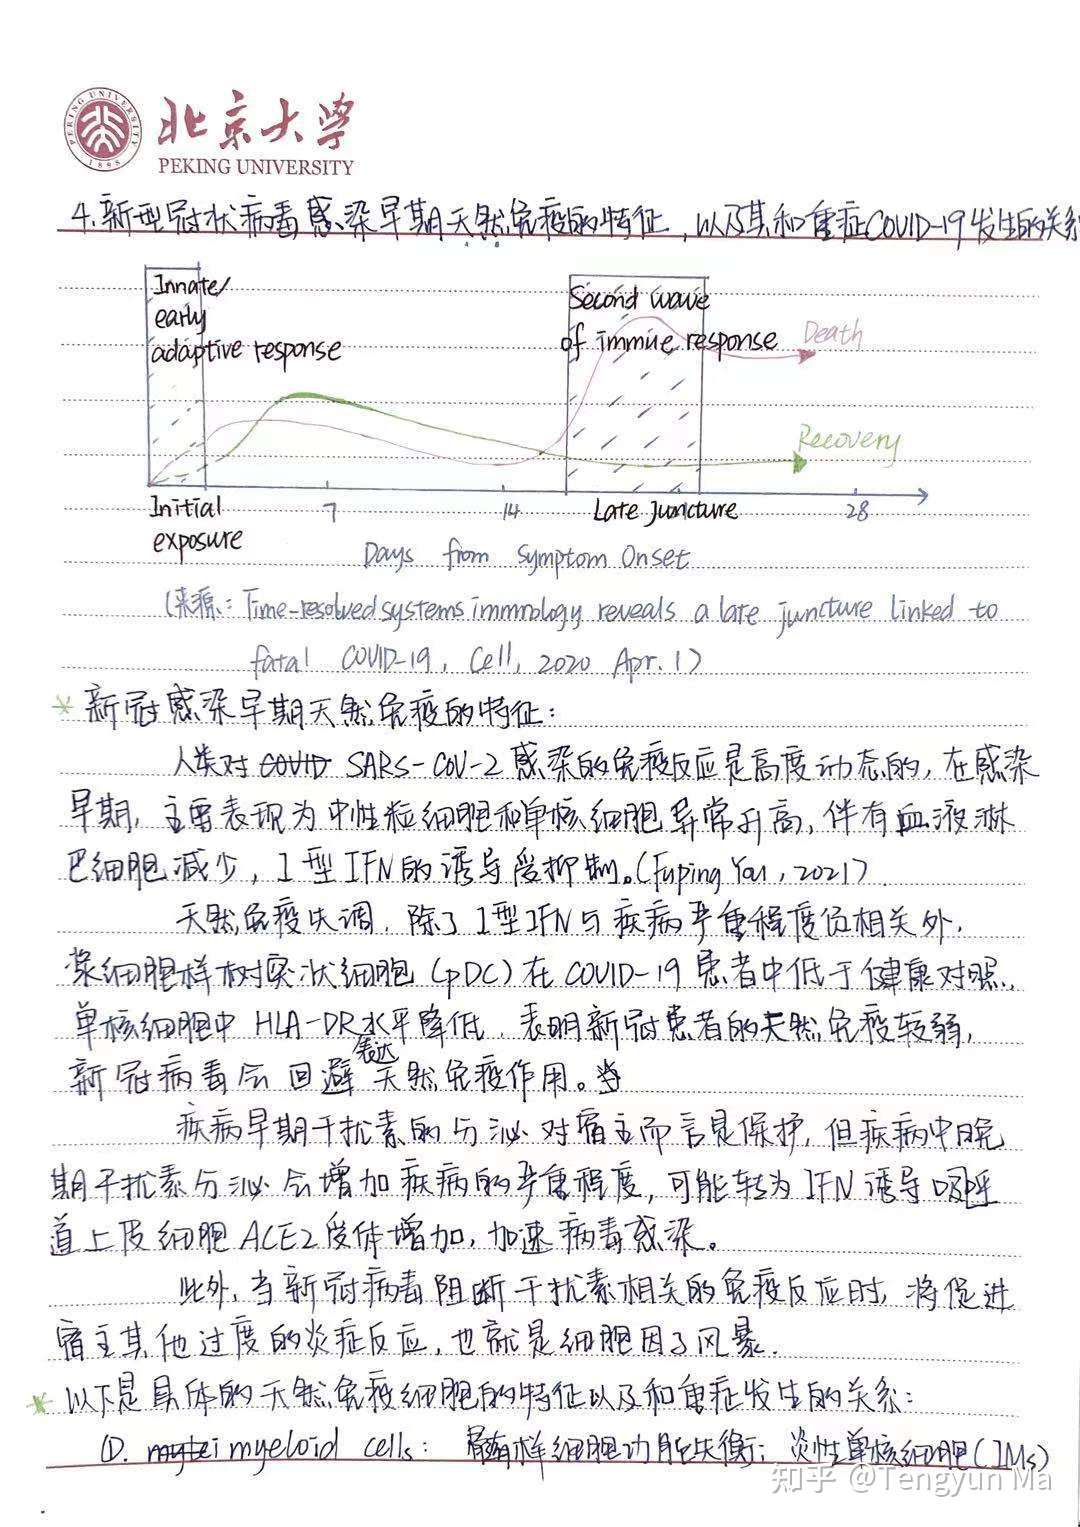 北京大学
PEKING UNIVERSITY
PEKING UNIVERSITY
1898
4.新型冠状病毒感染早期天然免疫的特征,以及其和重症COVID-19发生的关系
Innate/
early
adaptive response
Second wave
of immune response
Death
Recovery
Initial
exposure
7
14
Late Juncture
28
Days from Symptom Onset
(来源:Time-resolved systems immnology reveals a late juncture linked to
fatal COVID-19, Cell, 2020 Apr.1)
* 新冠感染早期天然免疫的特征:
人类对COVID SARS-COV-2感染的免疫反应是高度动态的,在感染
早期,主要表现为中性粒细胞和单核细胞异常升高,伴有血液淋
巴细胞减少,I型IFN的诱导受抑制。(Fuping You,2021)
天然免疫失调,除了I型IFN与疾病严重程度负相关外,
浆细胞样树突状细胞(pDC)在COVID-19患者中低于健康对照,
单核细胞中HLA-DR水平降低,表明新冠患者的天然免疫较弱,
表达
新冠病毒会回避天然免疫作用。当
疾病早期干扰素的分泌对宿主而言是保护,但疾病中晚
期干扰素分泌会增加疾病的严重程度,可能转为IFN诱导呼吸
道上皮细胞ACE2受体增加,加速病毒感染。
此外,当新冠病毒阻断干扰素相关的免疫反应时,将促进
宿主其他过度的炎症反应,也就是细胞因子风暴.
* 以下是具体的天然免疫细胞的特征以及和重症发生的关系:
①. myeloid cells: 髓样细胞功能失衡;炎性单核细胞(IMs)
知乎 @Tengyun Ma